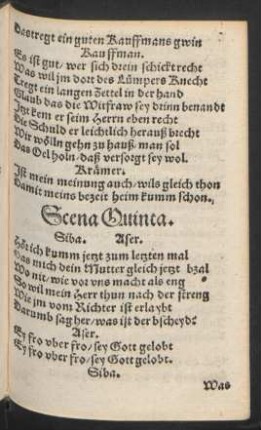 Das tregt ein guten Kauffmans gwin
Kauffman.
Es ist gut/ wer sich drein schickt recht
Was wil jm dort des Lümpers Knecht
Tregt ein langen Zettel in der hand
Glaub das die Witfraw sey drinn benandt
Jetz kem er seim Herrn eben recht
Die Schuld er leichtlich herauß brecht
Wir wölln gehn zu hauß/ man sol
Das Oel holn/ daß versorgt sey wol.
Krämer.
Ist mein meinung auch/ wils gleich thon
Damit meins bezeit heim kumm schon.
Scena Quinta.
Siba. Aser.
Hör ich kumm jetzt zum letzten mal
Das mich dein Mutter gleich jetzt bzal
Wo nit/ wie vot vns macht als eng
So wil mein Herr thun nach der streng
Wie jm vom Richter ist erlaybt
Darumb sag her/ was ist der bscheydt
Aser.
Ey fro vber fro/ sey Gott gelobt
Ey fro vber fro/ sey Gott gelobt.
Siba.
Was